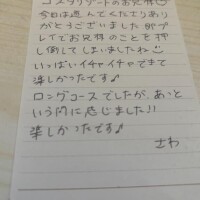 コスタリゾートのお兄様☺
今日は選んでくださりあり
がとうございました。8Pプ
レイでお兄様のことを押
し倒してしまいましたね☺
いっぱいイチャイチャできて
楽しかったです♪
ロングコースでしたが、あっと
いう間に感じました!!
楽しかったです♪
さわ